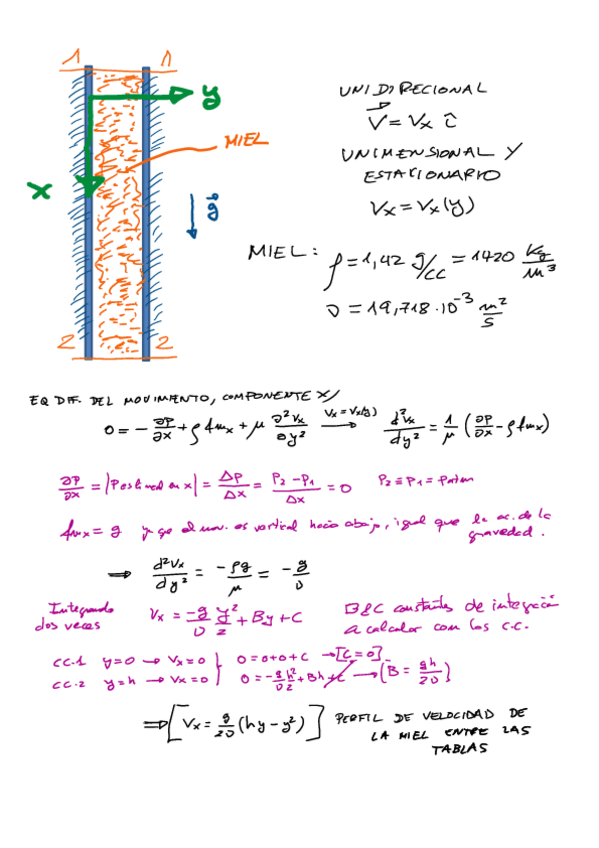 1 1
y
MIEL
X
g
2 2
UNIDIRECIONAL
V = Vx î
UNIMENSIONAL Y
ESTACIONARIO
Vx = Vx(y)
MIEL: ρ = 1,42 g/cc = 1420 Kg/m³
ν = 19,718·10⁻³ m²/s
EQ DIF. DEL MOVIMIENTO, COMPONENTE X/
0 = -∂P/∂x + ρ fmx + μ ∂²Vx/∂y² Vx=Vx(y) → d²Vx/dy² = 1/μ (∂P/∂x - ρ fmx)
∂P/∂x = |P es lineal en x| = ΔP/Δx = P2-P1/Δx = 0 P2 ≡ P1 = Patm
fmx = g ya que el mov. es vertical hacia abajo, igual que la ac. de la gravedad.
⇒ d²Vx/dy² = -ρg/μ = -g/ν
Integrando dos veces Vx = -g/ν y²/2 + By + C B&C constantes de integración a calcular con los c.c.
CC-1 y=0 → Vx=0 } 0=0+0+C → [C=0]
CC-2 y=h → Vx=0 } 0=-g/ν h²/2 + Bh + C → (B = gh/2ν)
⇒ [Vx = g/2ν (hy - y²)] PERFIL DE VELOCIDAD DE
LA MIEL ENTRE LAS
TABLAS